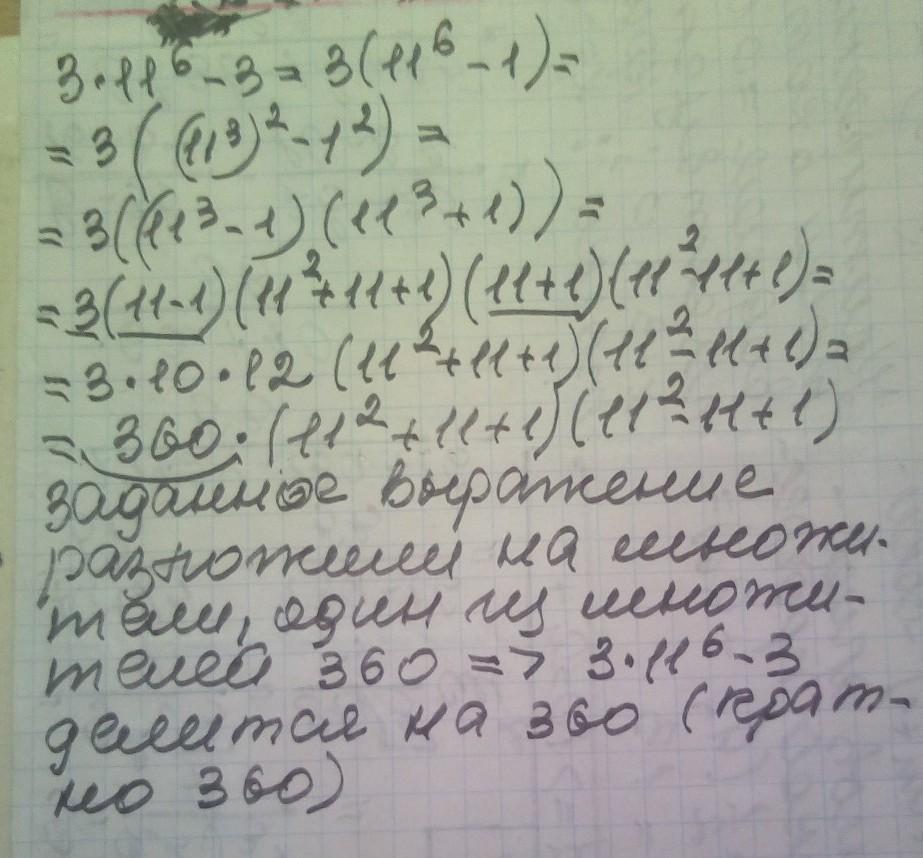 3·11⁶-3=3(11⁶-1)=
=3((11³)²-1²)=
=3((11³-1)(11³+1))=
=3(11-1)(11²+11+1)(11+1)(11²-11+1)=
=3·10·12(11²+11+1)(11²-11+1)=
=360·(11²+11+1)(11²-11+1)
заданное выражение
разложили на множи-
тели, один из множи-
телей 360 => 3·11⁶-3
делится на 360 (крат-
но 360)